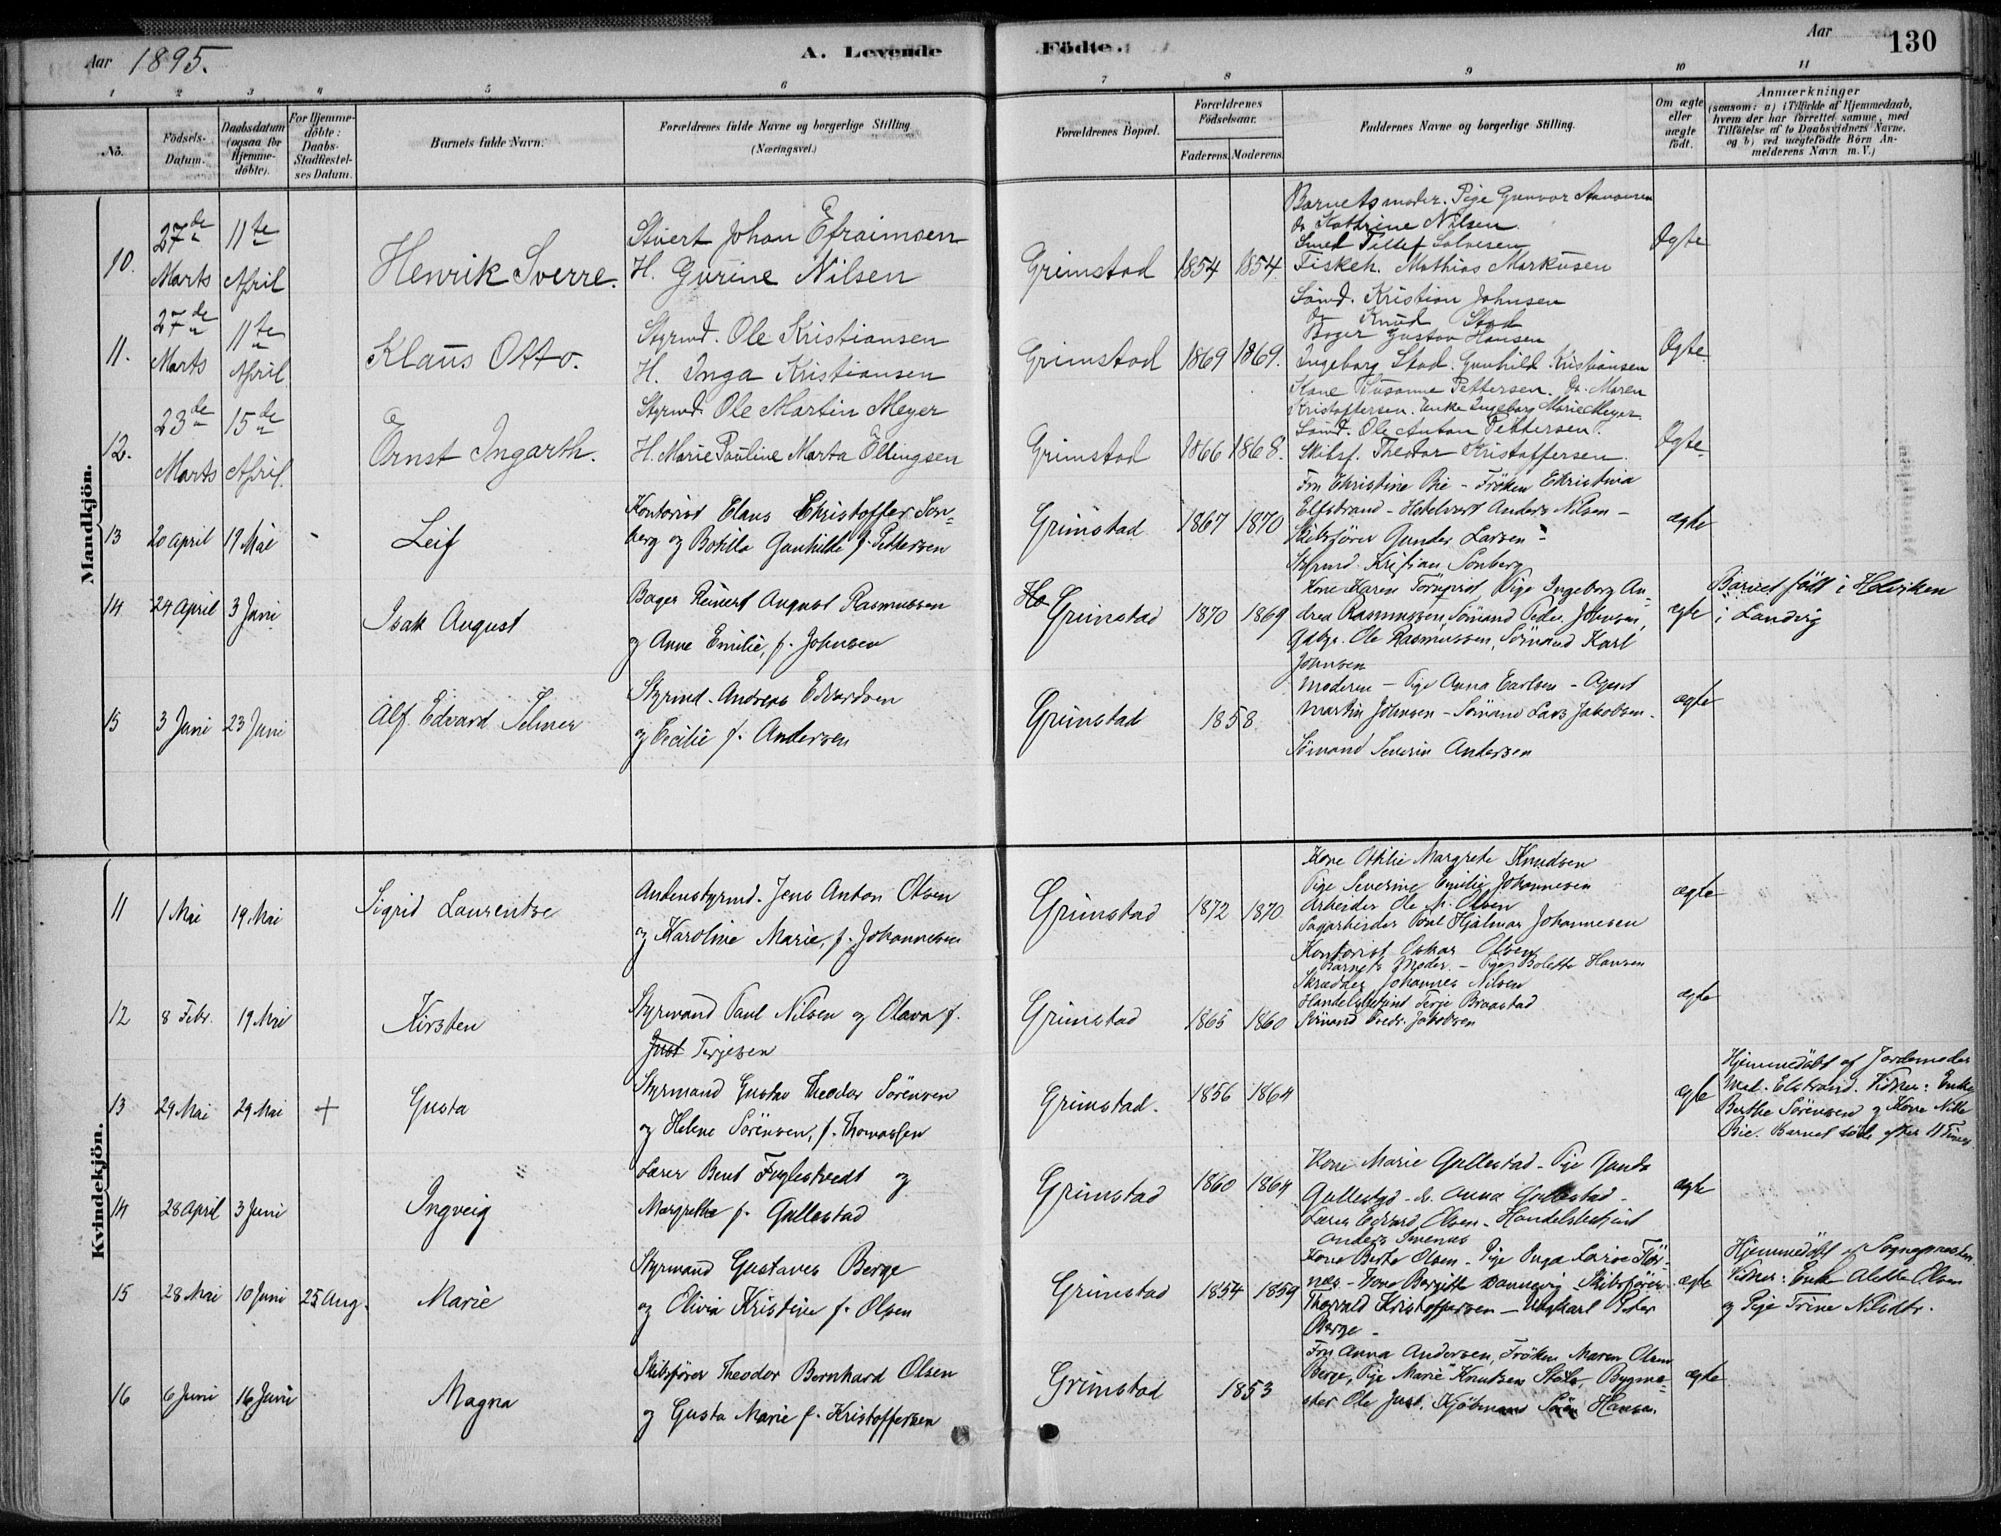 Aar 1895.
A. Levende
Födte.
Aar
130
1
2
3
4
5
6
7
8
9
10
11
No.
Födsels-
Datum.
Daabsdatum
(ogsaa for
Hjemme-
döbte).
For Hjemme-
döbte:
Daabs-
Stadfæstel-
ses Datum.
Barnets fulde Navn.
Forældrenes fulde Navne og borgerlige Stilling
(Næringsvei.)
Forældrenes Bopæl.
Forældrenes
Födselsaar.
Faderens. Moderens.
Faddernes Navne og borgerlige Stilling.
Om ægte
eller
uægte
födt.
Anmærkninger
(saasom: a) i Tilfælde af Hjemmedaab,
hvem der har forrettet samme, med
Tilföielse af to Daabsvidners Navne,
og b) ved uægtefödte Börn An-
melderens Navn m. V.)
Mandkjön.
10.
27de
Marts
11te
April
Henrik Sverre.
Stuert Johan Efraimsen
H. Gurine Nilsen
Grimstad
1854
1854.
Barnets moder. Pige Gunvor
do Kathrine Nilsen
Smed Tellef Salvesen
Fiskeh. Mathias Markusen
Sömd. Kristian Johnsen
Ægte
11.
27de
Marts
11te
April
Klaus Otto.
Styrmd. Ole Kristiansen
H. Inga Kristiansen
Grimstad
1869
1869.
do Knud Stad
Bager Gustav Hansen
Ingeborg Stad. Gunhild Kristiansen
Ægte
12.
23de
Marts
15de
April.
Ernst Ingarth.
Styrmd. Ole Martin Meyer
H. Marie Pauline Marta Ellingsen
Grimstad
1866
1868.
Kone Susanne Pettersen. do. Maren
Kristoffersen. Enke Ingeborg Marie Meyer
Sömd. Ole Anton Pettersen.
Skibsf. Theodor Kristoffersen.
Ægte.
13
20 April
19 Mai
-
Leif
Kontorist Claus Christoffer Sön-
berg og Botilla Gunhilde f. Pettersen
Grimstad
1867
1870
Fru Christine Bie - Fröken Christina
Elfstrand - Hotelvert Anders Nilsen -
Skibsförer Gunder Larsen -
Styrmd. Kristian Sönberg
ægte
14
24 April
3 Juni
Isak August
Bager Reinert August Rasmussen
og Anne Emilie, f. Johnsen
Grimstad
1870
1869
Kone Karen Törnqvist, Pige Ingeborg An-
drea Rasmussen, Sömand Peder Johnsen,
Gdbr. Ole Rasmussen, Sömand Karl
Johnsen
ægte
Barnet födt i Holviken
i Landvig
15
3 Juni
23 Juni
Alf Edvard Selmer
Styrmd. Andreas Edvardsen
og Cecilie f. Andersen
Grimstad
1858
Moderen - Pige Anna Carlsen - Agent
Martin Johnsen - Sömand Lars Jakobsen -
Sömand Severin Andersen
ægte
Kvindekjön.
11
1 Mai
19 Mai
Sigrid Laurentse
Andenstyrmd. Jens Anton Olsen
og Karoline Marie, f. Johannesen
Grimstad
1872
1870
Kone Othilie Margrete Knudsen
Pige Severine Emilie Johannesen
Arbeider Ole M. Olsen
Sagarbeider Paul Hjalmar Johannesen
Kontorist Oskar Olsen
ægte
12
8 Febr.
19 Mai
Kirsten
Styrmand Paul Nilsen og Olava f.
Just Terjesen
Grimstad
1865
1860
Barnets Moder. - Pige Bolette Hansen
Skrædder Johannes Nilsen
Handelsbetjent Terje Braastad
Sömand Fredr. Jakobsen
ægte
13
29 Mai
29 Mai
+
Gusta
Styrmand Gustav Theodor Sörensen
og Helene Sörensen, f. Thomassen
Grimstad.
1856
1864
ægte
Hjemmedöbt af Jordemoder
Mad. Elstrand. Vidner: Enke
Berthe Sörensen og Kone Nille
Bie. Barnet döde efter 11 Timer
14
28 April
3 Juni
Ingveig
Lærer Bent Fuglestvedt og
Margrethe f. Gullestad
Grimstad
1860
1864
Kone Marie Gullestad - Pige Gunda
Gullestad - do. Anna Gullestad -
Lærer Edvard Olsen - Handelsbetjent
Anders Svenæs
ægte
15
28 Mai
10 Juni
25 Aug.
Marie
Styrmand Gustaves Berge
og Olivia Kristine f. Olsen
Grimstad
1854
1859
Kone Berte Olsen - Pige Inga
- Kone Bergitte Dannevig - Skibsförer
Thorvald Kristoffersen - Ungkarl Peter
Berge -
ægte
Hjemmedöbt af Sognepresten
Vidner: Enke Alette Olsen
og Pige Trine Nilsdtr.
16
6 Juni
16 Juni
Magna
Skibsförer Theodor Bernhard Olsen
og Gusta Marie f. Kristoffersen
Grimstad
1853
Fru Anna Andersen, Fröken Maren Olsen
Berge, Pige Marie Knutsen Stöle, Bygme-
ster Ole Just. Kjöbmand Sören Hansen.
ægte